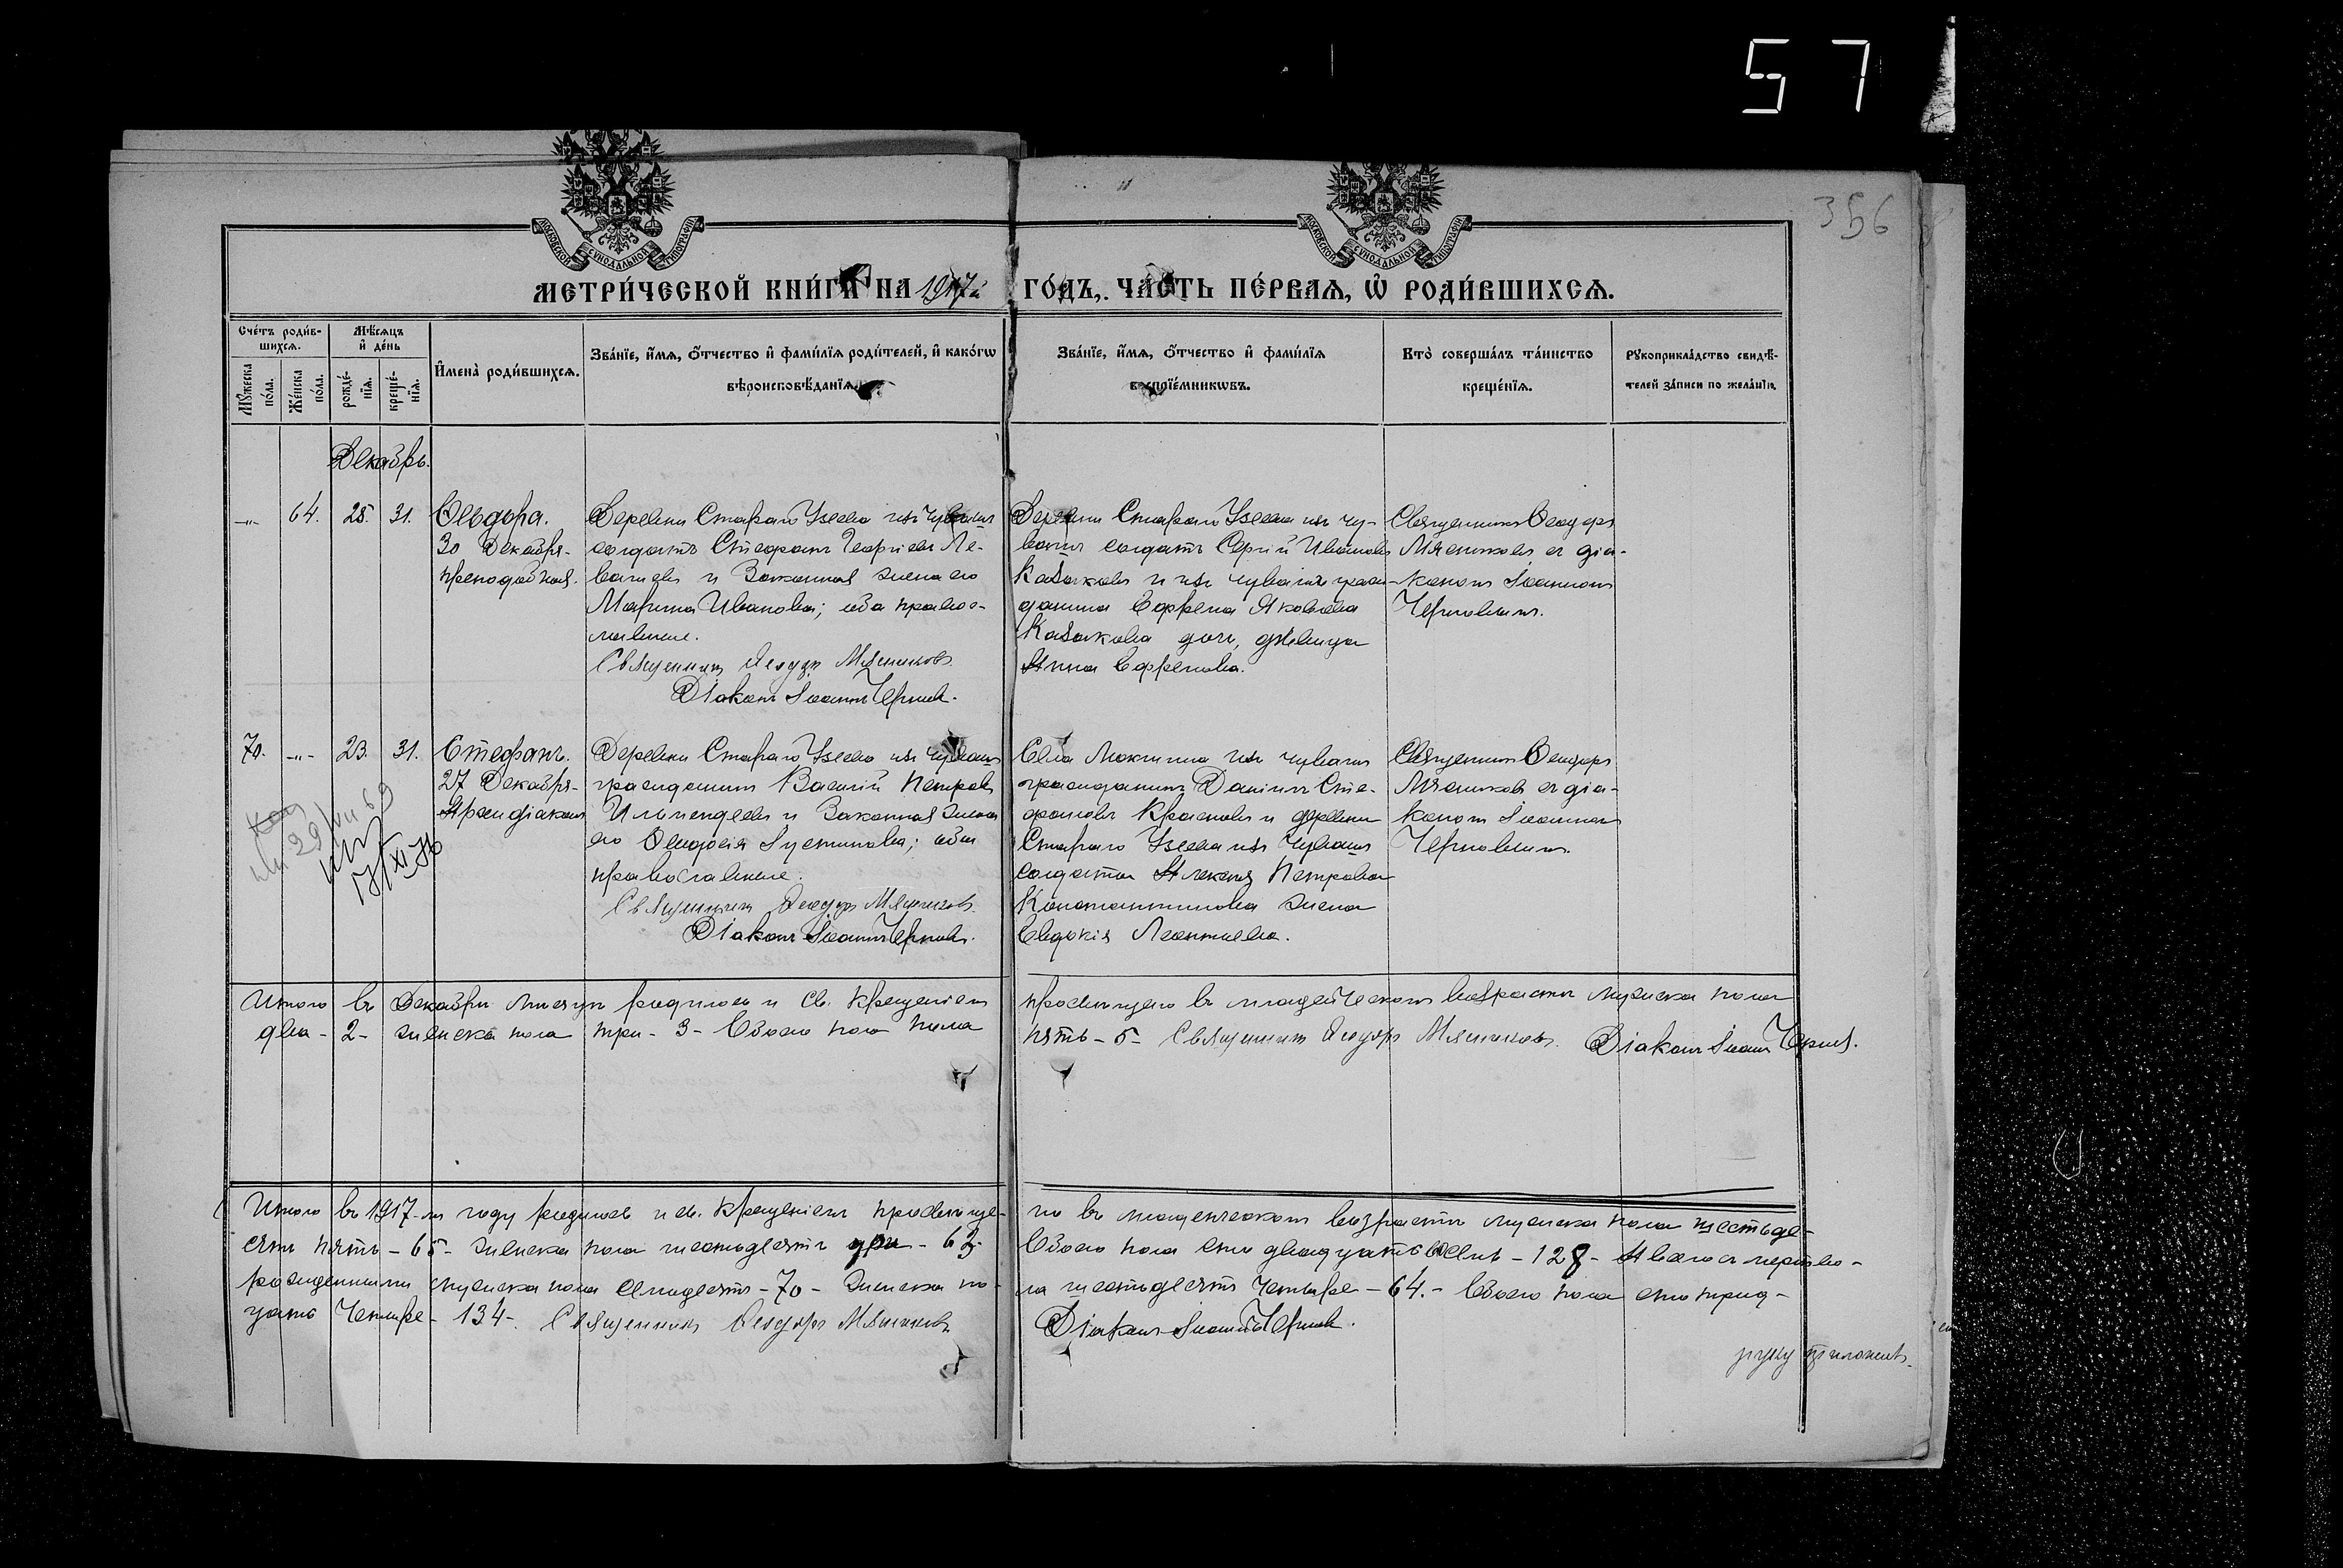 57
356
МОСКОВСКОЙ СѴНОДАЛЬНОЙ ТИПОГРАФІИ
МОСКОВСКОЙ СѴНОДАЛЬНОЙ ТИПОГРАФІИ
МЕТРИ́ЧЕСКОЙ КНИ́ГИ НА 1917й ГО́ДЪ, ЧА́СТЬ ПЕ́РВАѦ, Ѡ҆ РОДИ́ВШИХСѦ.
Сче́тъ роди́в-
шихсѧ.
Мꙋ́жеска
по́ла.
Же́нска
по́ла.
Мѣ́сѧцъ
и҆ де́нь
рожде́-
нїѧ.
креще́-
нїѧ.
И҆мена̀ роди́вшихсѧ.
Зва́нїе, и҆́мѧ, ѻ҆́тчество и҆ фами́лїѧ роди́телей, и҆ како́гѡ
вѣроисповѣ́данїѧ.
Зва́нїе, и҆́мѧ, ѻ҆́тчество и҆ фами́лїѧ
воспрїе́мникѡвъ.
Кто̀ соверша́лъ та́инство
креще́нїѧ.
Рꙋкоприкла́дство свидѣ́-
телей за́писи по жела́нїю.
Декабрь.
64. 25. 31.
Ѳеодора.
30 Декабря-
преподобная.
Деревни Стараго Узеева изъ чувашъ
солдатъ Стефанъ Георгіевъ Ле-
и законная жена его
Марина Иванова; оба правос-
лавные.
Священникъ Ѳеодоръ Мясниковъ
Діаконъ Іоаннъ Черновъ.
Деревни Стараго Узеева изъ чу-
вашъ солдатъ Сергій Ивановъ
Казаковъ и изъ чувашъ граж-
данина Ефрема Яковлева
Казакова дочь, дѣвица
Анна Ефремова.
Священникъ Ѳеодоръ
Мясниковъ съ діа-
кономъ Іоанномъ
Черновымъ.
70. 23. 31.
Стефанъ.
27 Декабря-
Архидіаконъ
Деревни Стараго Узеева изъ чувашъ
гражданинъ Василій Петровъ
Ильмендеевъ и законная жена
его Ѳеодосія Іустинова; оба
православные.
Священникъ Ѳеодоръ Мясниковъ
Діаконъ Іоаннъ Черновъ.
Села изъ чувашъ
гражданинъ Даніилъ Сте-
фановъ Красновъ и деревни
Стараго Узеева изъ чувашъ
солдата Алексія Петрова
Константинова жена
Евдокія Леонтьева.
Священникъ Ѳеодоръ
Мясниковъ съ діа-
кономъ Іоанномъ
Черновымъ.
Итого въ Декабрѣ мѣсяцѣ родилось и св. крещеніемъ просвѣщено въ младенческомъ возрастѣ мужеска пола
два - 2 - женска пола три - 3 - Обоего пола пять - 5 - Священникъ Ѳеодоръ Мясниковъ. Діаконъ Іоаннъ Черновъ.
Итого въ 1917-мъ году родилось и св. крещеніемъ просвѣще-но въ младенческомъ возрастѣ мужеска пола шестьде-
сятъ пять - 65 - женска пола шестьдесятъ три - 63 - Обоего пола сто двадцать восемь - 128 - А всего съ мертво-
рожденными мужеска пола семьдесятъ - 70 - женска по-ла шестьдесятъ четыре - 64. - Обоего пола сто трид-
цать четыре - 134 - Священникъ Ѳеодоръ Мясниковъ Діаконъ Іоаннъ Черновъ.
руку приложилъ